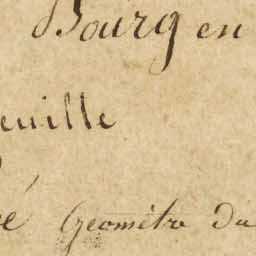 Bourg en
euille
é Géomètre du